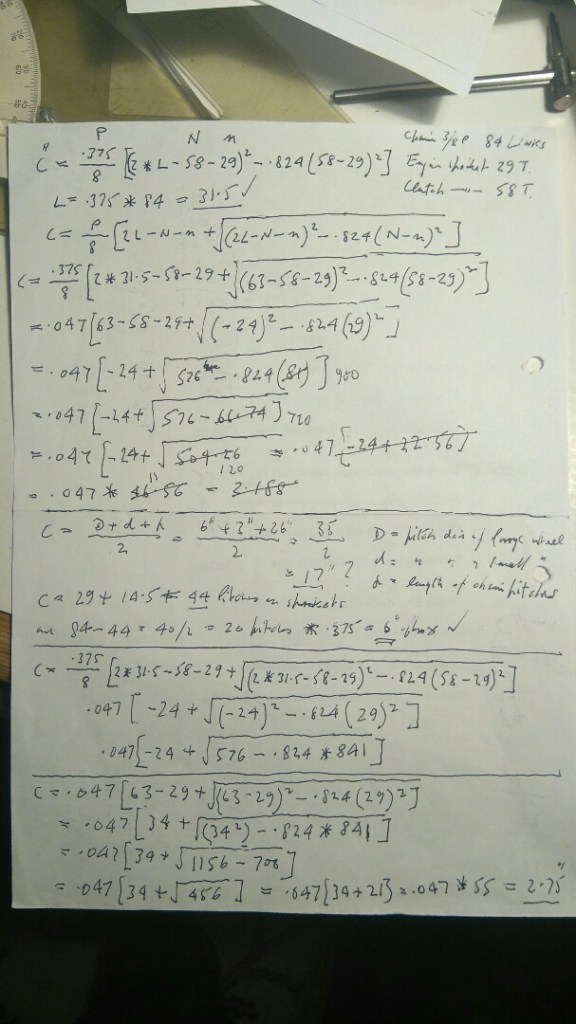 P N n
C" = .375/8 [2 * L - 58 - 29)² - .824 (58-29)²]
Chain 3/8 P 84 Links
Engin sprocket 29 T.
Clutch —"— 58 T.
L = .375 * 84 = 31.5 ✓
C = P/8 [2L - N - n + √(2L - N - n)² - .824 (N - n)²]
C = .375/8 [2 * 31.5 - 58 - 29 + √(63 - 58 - 29)² - .824 (58-29)²]
= .047 [63 - 58 - 29 + √(-24)² - .824 (29)²]
= .047 [-24 + √576 - .824 (81)] 900
= .047 [-24 + √576 - 66.74] 720
= .047 [-24 + √509.26 = .047 [-24 + 22.56]
13 120
= .047 * 46.56 = 2.188
C = D + d + h / 2 = 6" + 3" + 26" / 2 = 35/2
= 17" ?
D = pitch dia of large wheel
d = " " " small "
h = length of chain pitches
C = 29 + 14.5 = 44 Pitches on sprockets
84 - 44 = 40/2 = 20 pitches * .375 = 6" ✓
C = .375/8 [2 * 31.5 - 58 - 29 + √(2 * 31.5 - 58 - 29)² - .824 (58 - 29)²]
.047 [-24 + √(-24)² - .824 (29)²]
.047 [-24 + √576 - .824 * 841]
C = .047 [63 - 29 + √(63 - 29)² - .824 (29)²]
= .047 [34 + √(34²) - .824 * 841]
= .047 [34 + √1156 - 700]
= .047 [34 + √456] = .047 [34 + 21] = .047 * 55 = 2.75"